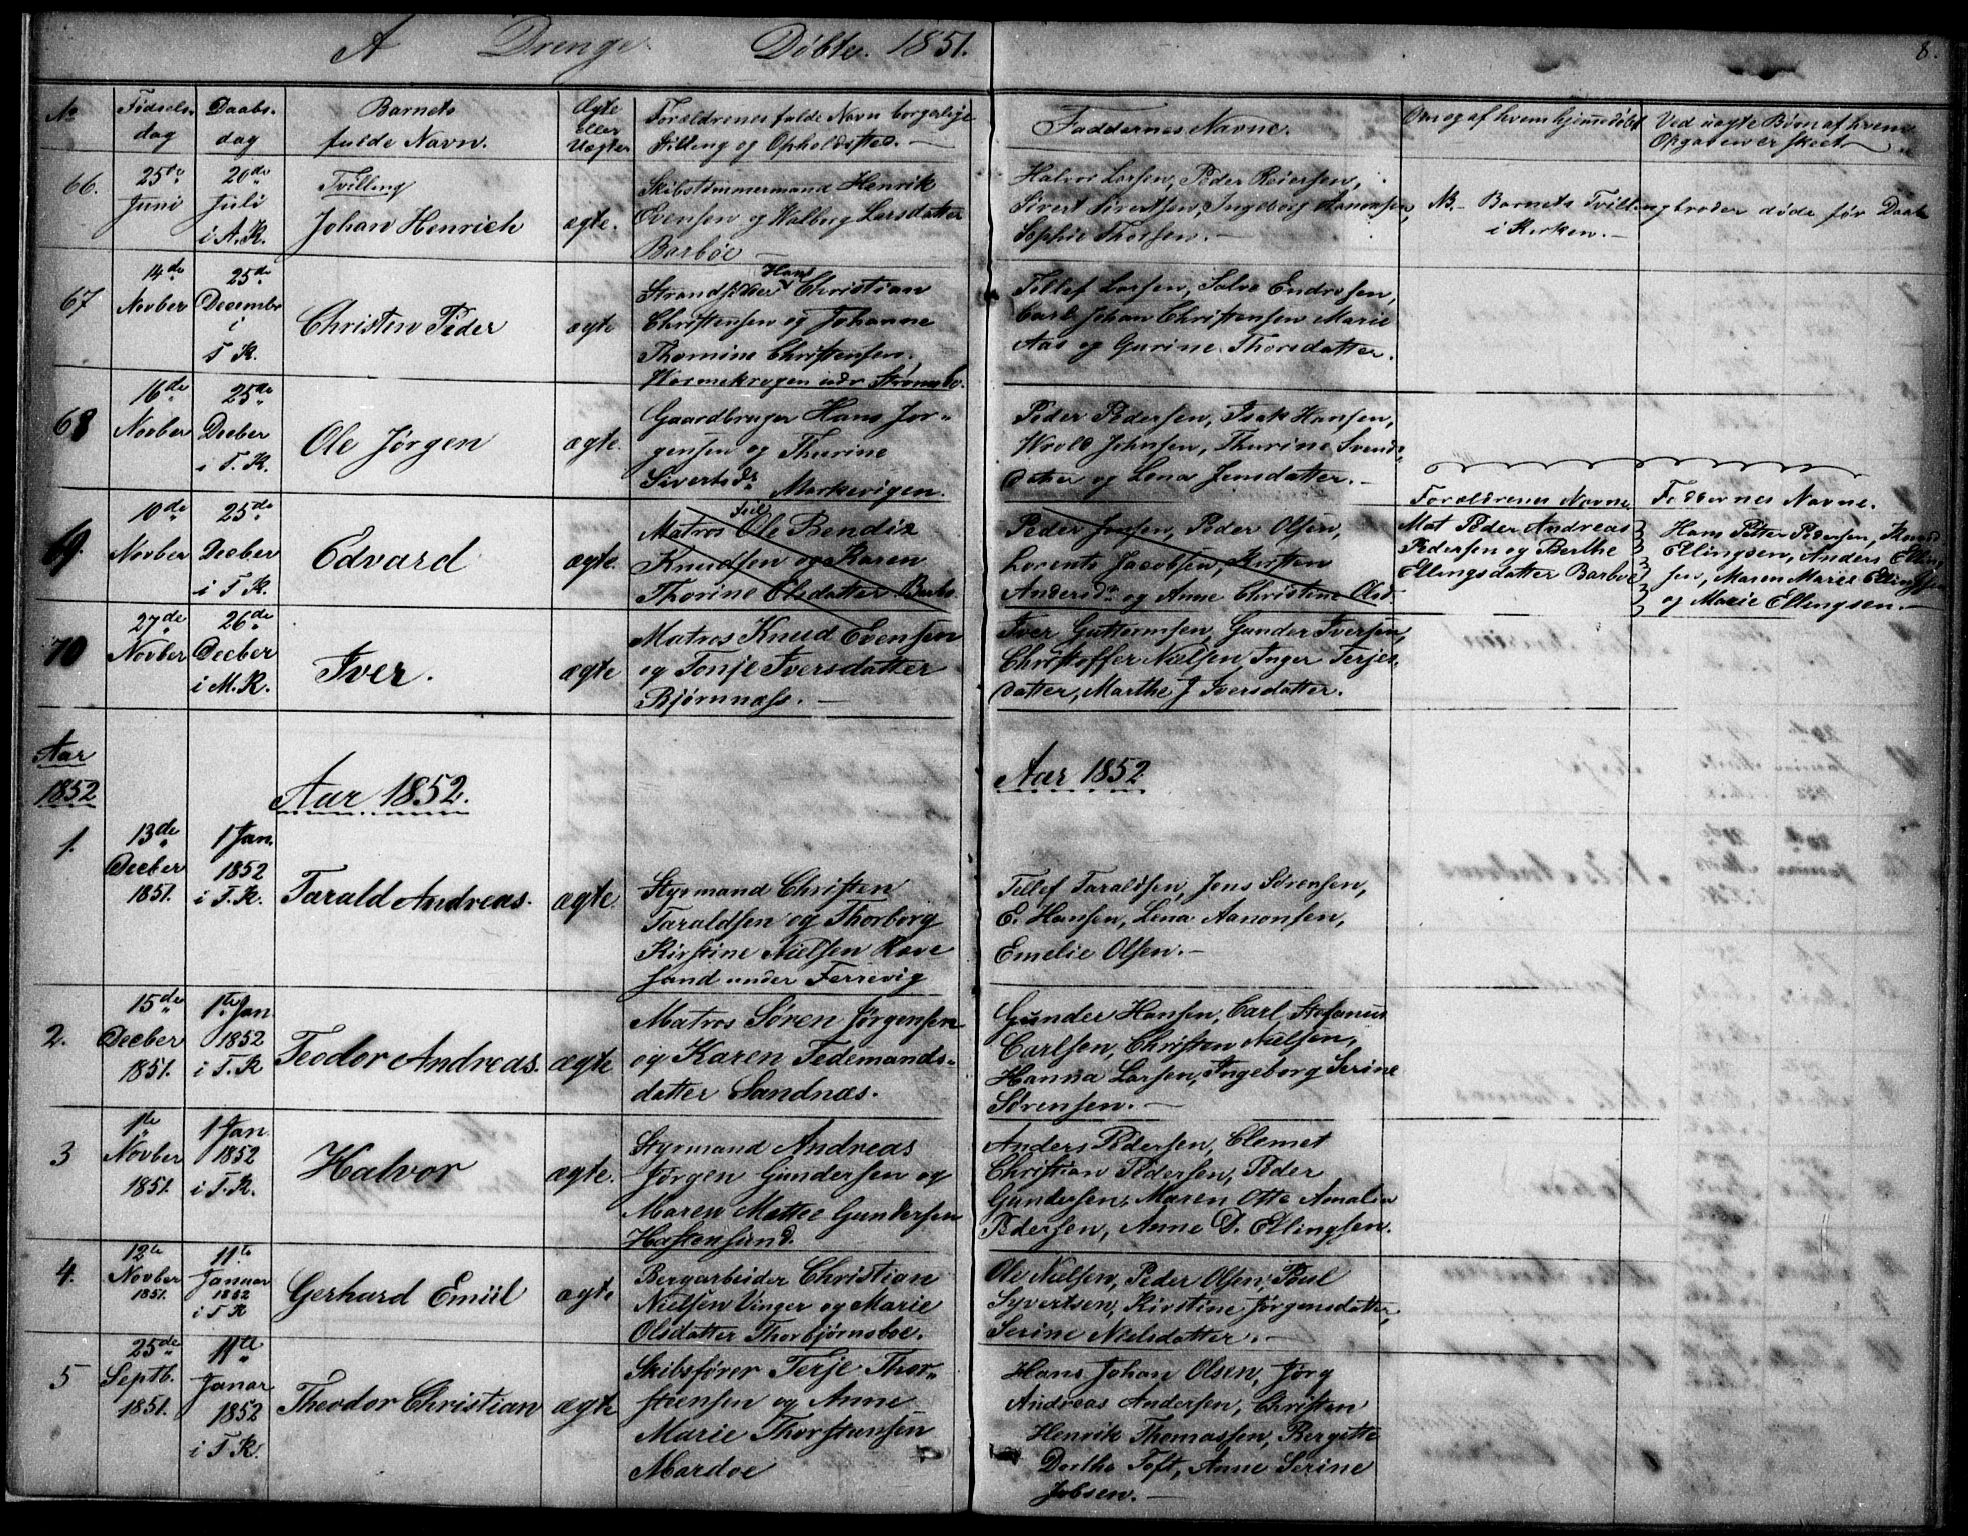 A Drenge Døbte. 1851.
8.
No
Fødsels-
dag
Daabs-
dag
Barnets
fulde Navn.
Ægte
eller
Uægte
Forældrenes fulde Navn borgerlige
Stilling og Opholdssted. —
Faddernes Navne.
Om og af hvem hjemmedøbt
Ved uægte Børn af hvem
Opgaven er skeet
66.
25de
Juni
20de
Juli
i A. K.
Tvilling
Johan Henrich
ægte.
Skibstimmermand Henrik
Evensen og Walborg Larsdatter
Barbøe —
Halvor Larsen, Peder Reiersen,
Sivert Sivertsen, Ingeborg Aanonsen,
Sophie Thorsen. —
NB. — Barnets Tvillingbroder døde før Daab
i Kirken. —
67
14de
Novber
25de
Decembr
i
T K.
Christen Peder
ægte
Hans
Strandsidder Christian
Christensen og Johanne
Thomine Christensen.
Hosmekrogen udr Strømsbo.
Tellef Larsen, Salve Endresen,
Carl Johan Christensen Marie
Aas og Gurine Thorsdatter.
68
16de
Novber
25de
Deeber
i T. K.
Ole Jørgen
ægte.
Gaardbruger Hans Jør-
gensen og Thurine
Sivertsdr Merkevigen.
Peder Pedersen, Isak Hansen,
Wrold Johnsen, Thurine Svends-
datter og Lena Jensdatter. —
69.
10de
Novber
25de
Deeber
i T K.
Edvard
ægte.
Feil
Matros Ole Bendix
Knudsen og Karen
Thorine Olsdatter Barbo
Peder Jensen, Peder Olsen,
Lorents Jacobsen, Kirsten
Andersdr og Anne Christine Olsd.
Forældrenes Navne
Mat Peder Andreas
Pedersen og Berthe
Ellingsdatter Barboe
Faddernes Navne.
Hans Petter Pedersen, Knud
Ellingsen, Anders Elling
sen, Maren Marie Ellingsen
og Marie Ellingsen. —
70
27de
Novber
26de
Deeber
i M. K.
Iver.
ægte
Matros Knud Evensen
og Tonje Iversdatter
Bjørnnæss. —
Iver Guttormsen, Gunder Iversen,
Christoffer Nielsen, Inger Terjes-
datter, Marthe J Iversdatter.
Aar
1852
Aar 1852.
Aar 1852
1.
13de
Deeber
1851.
1 Jan.
1852
i T. K.
Tarald Andreas.
ægte
Styrmand Christen
Taraldsen og Thorborg
Kirstine Nielsen Rave
sand under Ferrevig
Tellef Taraldsen, Jens Sørensen,
E. Hansen, Lena Aanonsen,
Emelie Olsen. —
2.
15de
Deeber
1851.
1te Jan
1852
i T. K
Teodor Andreas.
ægte
Matros Søren Jørgensen
og Karen Tedemands-
datter Sandnæs.
Gunder Hansen, Carl Stefanus
Carlsen, Christen Nielsen,
Hanna Larsen, Ingeborg Serine
Sørensen. —
3
1te
Novber
1851.
1 Jan
1852
i T. K.
Halvor
ægte.
Styrmand Andreas
Jørgen Gundersen og
Maren Mattee Gundersen
Hastensund.
Anders Pedersen, Clemet
Christian Pedersen, Peder
Gundersen, Maren Otte Amalia
Pedersen, Anne D. Ellingsen.
4.
12te
Novber
1851.
11te
Januar
1852
i T K
Gerhard Emiil
ægte
Bergarbeider Christian
Nielsen Vinger og Marie
Olsdatter Thorbjørnsboe.
Ole Nielsen, Peder Olsen, Poul
Syvertsen, Kirstine Jørgensdatter,
Serine Nielsdatter. —
5
25de
Septb.
1851.
11te
Janar
1852
i T. K.
Theodor Christian
ægte
Skibsfører Terje Thor-
stensen og Anne
Marie Thorstensen
Mardøe
Hans Johan Olsen, Jørg
Andreas Andersen, Christen
Henrik Thomassen, Bergitte
Dorthe Toft, Anne Serine
Jobsen. —